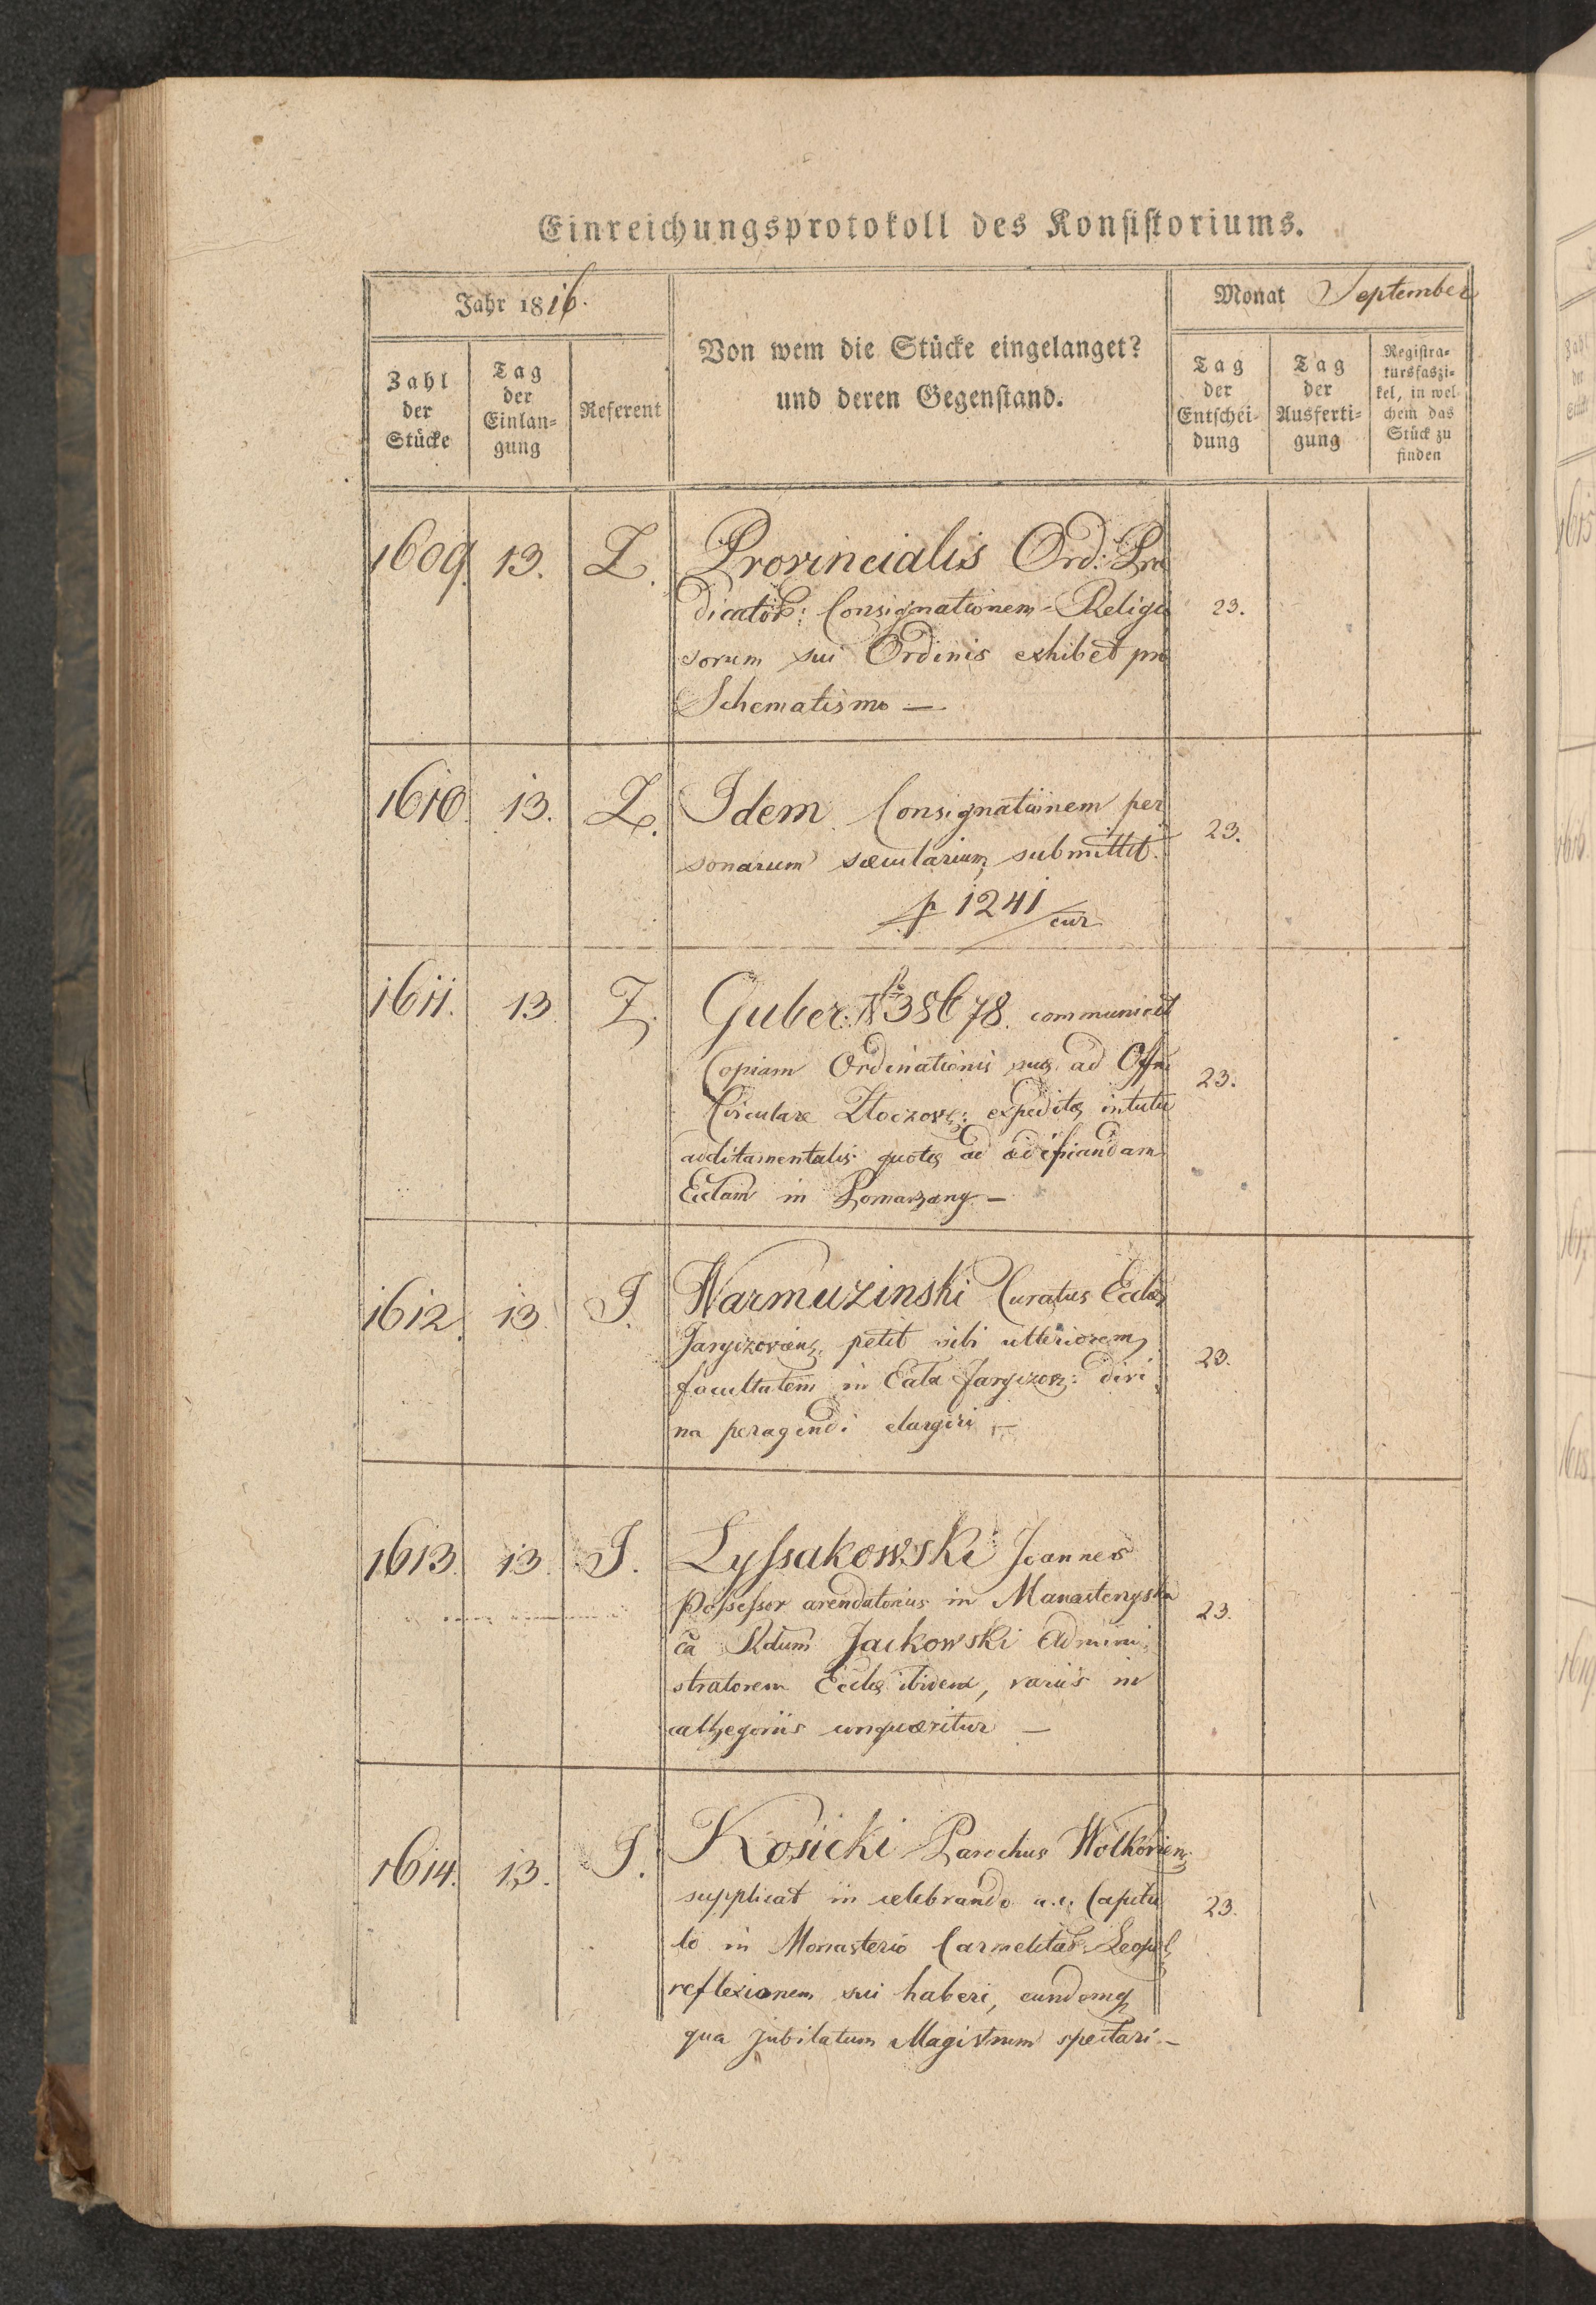 Einreichungsprotokoll des Konsistoriums.
Jahr 1816.
Monat September
Zahl der Stücke
Tag der Einlan=gung
Referent
Von wem die Stücke eingelanget?
und deren Gegenstand.
Tag der Entschei=dung
Tag der Ausferti=gung
Registra=tursfaszi=kel, in wel chem das Stück zu finden
1609. 13. Z. Provincialis Ord: Præ
dicator: Consignationem Religio
sorum sui Ordinis exhibet pro 23.
Schematismo —
1610. 13. Z. Idem Consignationem per
sonarum sæcularium submittit. 23.
p 1241/cur
1611. 13. Z. Guber: No 38678. communicat
Copiam Ordinationis suæ ad Offm
Circulare Zloczov: expeditæ intuitu 23.
additamentalis quotæ ad ædificandam
Eccl̃am in Pomarzany —
1612. 13. J. Warmuzinski Curatus Eccl̃æ
petit sibi ulteriorem
facultatem in Eccl̃a divi 23.
na peragendi elargiri —
1613. 13. J. Lyssakowski Joannes
Possessor arendatorius in Manasteryska 23.
ca Rdum Jackowski Admini
stratorem Eccl̃æ ibidem, variis in
cathegoriis conquæritur —
1614. 13. J. Kosicki Parochus Wolkovien:
supplicat in celebrando a. c. Capitu 23.
lo in Monasterio Carmelitar: Leopol:
reflexionem sui haberi, eundemq
qua jubilatum Magistrum spectari. —